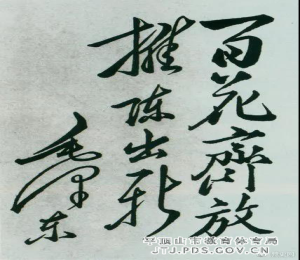 百花齊放
推陈出新
毛泽东
平顶山市教育体育局
JTJ.PDS.GOV.CN